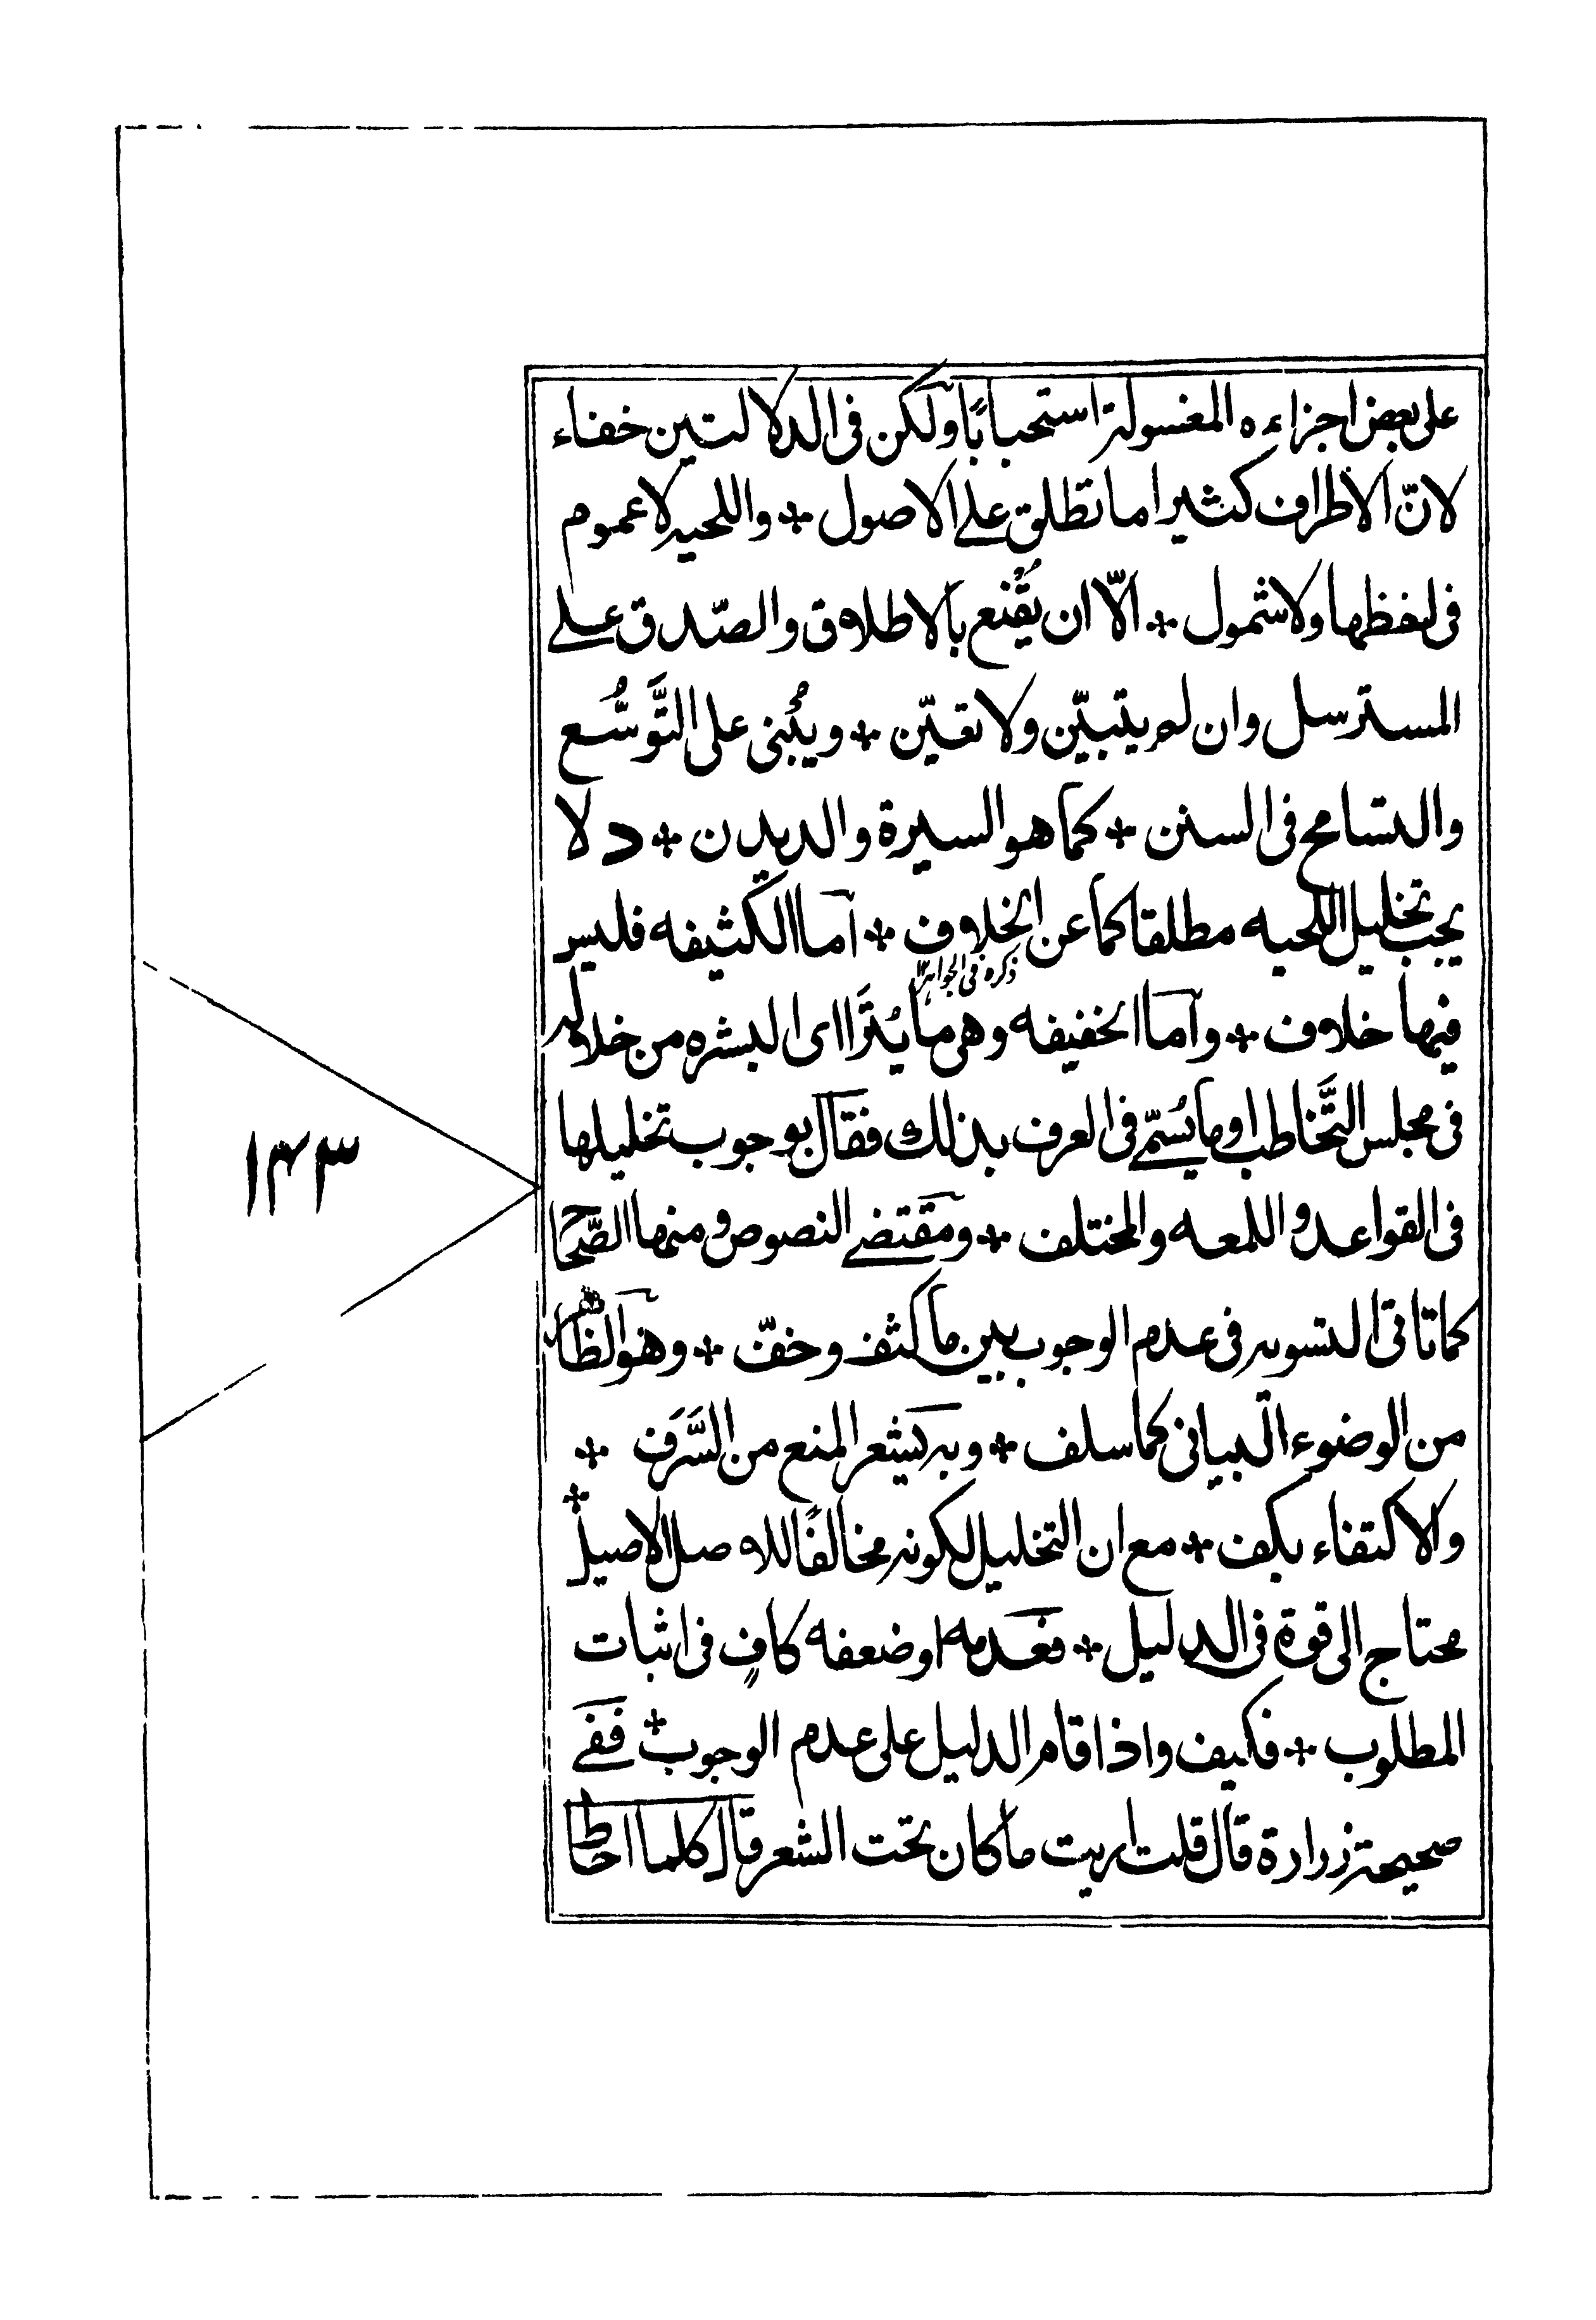 على بعض اجزاءه المغسولة استحبابًا ولكن فى الدلالتين خفاء
لانّ الاطراف كثيرا ما تطلق على الاصول * واللحيه لا عموم
فى لفظها ولا شمول * الّا ان يُقْنع بالاطلاق والصّدق على
المسترسل وان لم يتبيّن ولا تعيّن * ويُبْنى على التَّوَسُّع
والتسامح فى السنن * كما هو السيرة والديدن * د لا
يجب تخليل اللحيه مطلقا كما عن الخلاف * آما الكثيفه فليس
ذكره فى الجواهر
فيها خلاف * وآما الخفيفه وهى ما يُتَرَاا اى البشره من خلاله
فى مجلس التَّخاطب او ما يُسَمّى فى العرف بذلك فقال بوجوب تخليلها
فى القواعد و اللمعه والمختلف * ومقتضى النصوص ومنها الصّحاح
كما تاتى التسويه فى عدم الوجوب بين ما كثف وخفّ * وهو الظّاهر
من الوضوء البيانى كما سلف * وبه يشعر المنع من السَّرَف *
والاكتفاء بكف * مع ان التخليل لكونه مخالفًا للاصل الاصيل *
محتاج الى قوة فى الدليل * فعدمه او ضعفه كافٍ فى اثبات
المطلوب * فكيف واذا قام الدليل على عدم الوجوب * ففى
صحيحة زرارة قال قلت اريت ما كان تحت الشعر قال كلما احاط
١٤٣